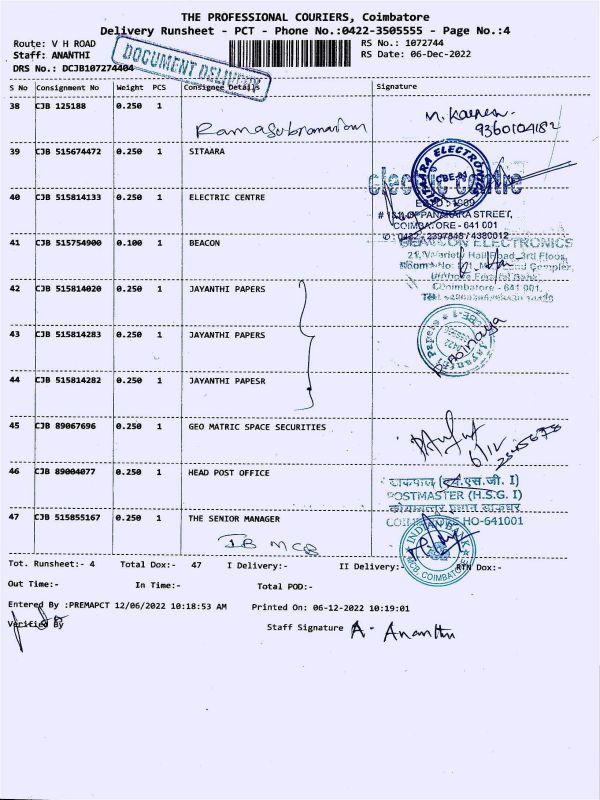 THE PROFESSIONAL COURIERS, Coimbatore
Delivery Runsheet - PCT - Phone No.:0422-3505555 - Page No.:4
Route: V H ROAD
RS No.: 1072744
Staff: ANANTHI
RS Date: 06-Dec-2022
DRS No.: DCJB107274404
DOCUMENT DELIVERY
S No Consignment No Weight PCS Consignee Details Signature
38 CJB 125188 0.250 1
Ramasubramaniam
9360104182
39 CJB 515674472 0.250 1 SITAARA
SITAARA ELECTRONICS
CBE-01
40 CJB 515814133 0.250 1 ELECTRIC CENTRE
electric centre
STREET,
COIMBATORE - 641 001
41 CJB 515754900 0.100 1 BEACON
BEACON ELECTRONICS
Coimbatore - 641 001,
42 CJB 515814020 0.250 1 JAYANTHI PAPERS
43 CJB 515814283 0.250 1 JAYANTHI PAPERS
Jayanthi Papers
CBE-1
44 CJB 515814282 0.250 1 JAYANTHI PAPESR
45 CJB 89067696 0.250 1 GEO MATRIC SPACE SECURITIES
6/12
2545678
46 CJB 89004077 0.250 1 HEAD POST OFFICE
डाकपाल (एच.एस.जी. I)
POSTMASTER (H.S.G. I)
47 CJB 515855167 0.250 1 THE SENIOR MANAGER
HO-641001
IB MCB
INDIAN BANK
MCB, COIMBATORE
Tot. Runsheet:- 4 Total Dox:- 47 I Delivery:- II Delivery:- RTN Dox:-
Out Time:- In Time:- Total POD:-
Entered By :PREMAPCT 12/06/2022 10:18:53 AM Printed On: 06-12-2022 10:19:01
Verified By
Staff Signature A. Ananthi